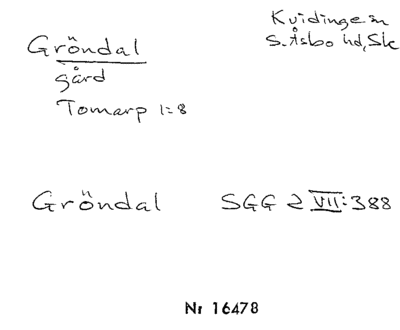 Gröndal
gård
Tomarp 1:8
Kvidinge sn
S. Åsbo hd, Sk
Gröndal SGG 2 VII:388
Nr 16478